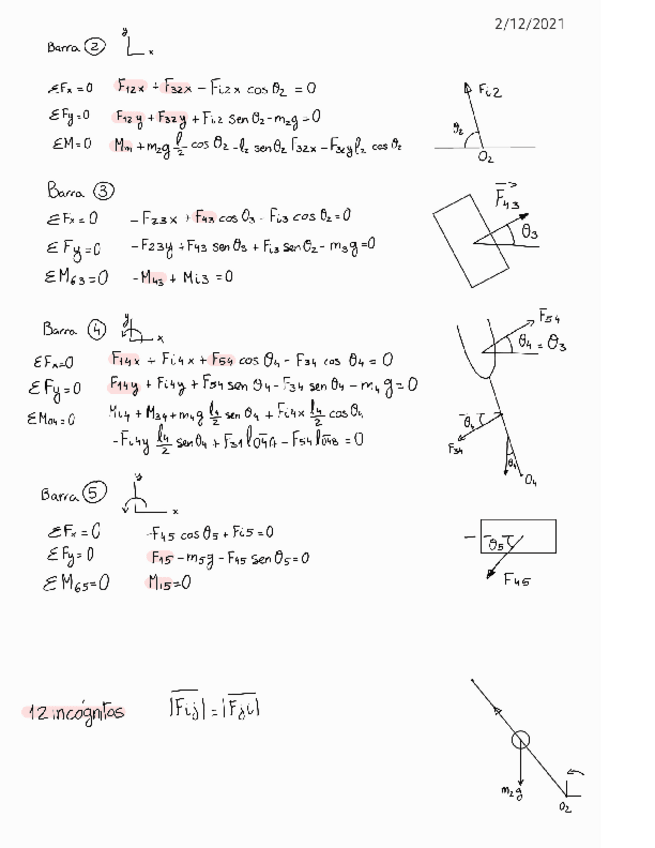 2/12/2021
Barra ② y x
ΣFx=0 F12x + F32x - Fi2x cos θ2 = 0
ΣFy=0 F12y + F32y + Fi2 sen θ2 - m2g = 0
ΣM=0 + m2g l/2 cos θ2 - l2 senθ2 F32x - l2 cos θ2
Fi2
θ2
O2
Barra ③
ΣFx=0 -F23x + F43 cos θ3 - Fi3 cos θ2 = 0
ΣFy=0 -F23y + F43 sen θ3 + Fi3 sen θ2 - m3g = 0
ΣMG3=0 -M43 + Mi3 = 0
F43
θ3
Barra ④ y x
ΣFx=0 F14x + Fi4x + F54 cos θ4 - F34 cos θ4 = 0
ΣFy=0 F14y + Fi4y + F54 sen θ4 - F34 sen θ4 - m4g = 0
ΣMO4=0 Mi4 + M34 + m4g l4/2 sen θ4 + Fi4x l4/2 cos θ4
-Fi4y l4/2 sen θ4 + F34 lO4A - F54 lO4B = 0
F54
θ4 = θ3
θ4
F34
θ4
O4
Barra ⑤ y x
ΣFx=0 -F45 cos θ5 + Fi5 = 0
ΣFy=0 F15 - m5g - F45 sen θ5 = 0
ΣMG5=0 M15=0
θ5
F45
12 incógnitas |Fij| = |Fji|
m2g
O2